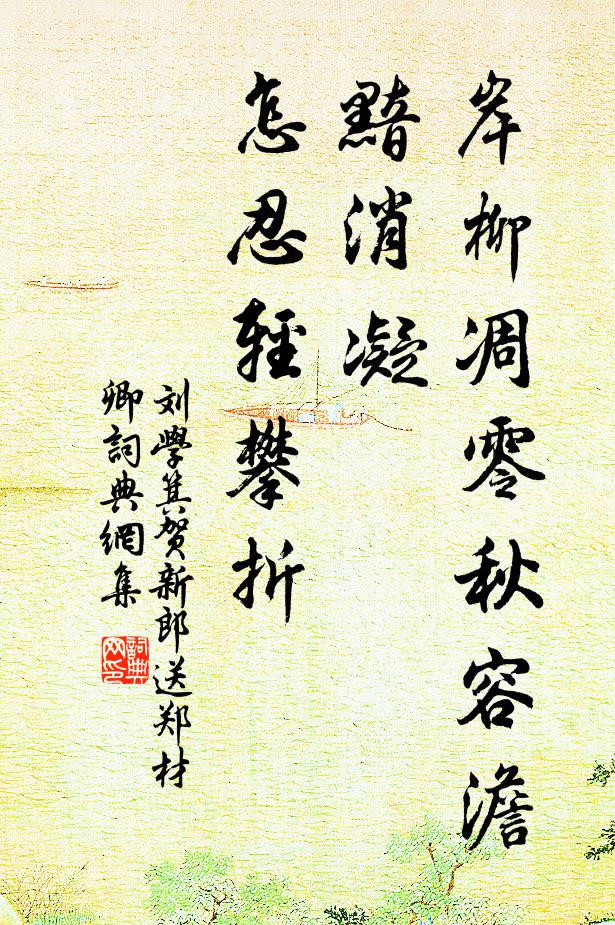 岸柳凋零秋容澹
黯消凝
怎忍輕攀折
刘學箕贺新郎送郑材
卿詞典網集
詞典
网印